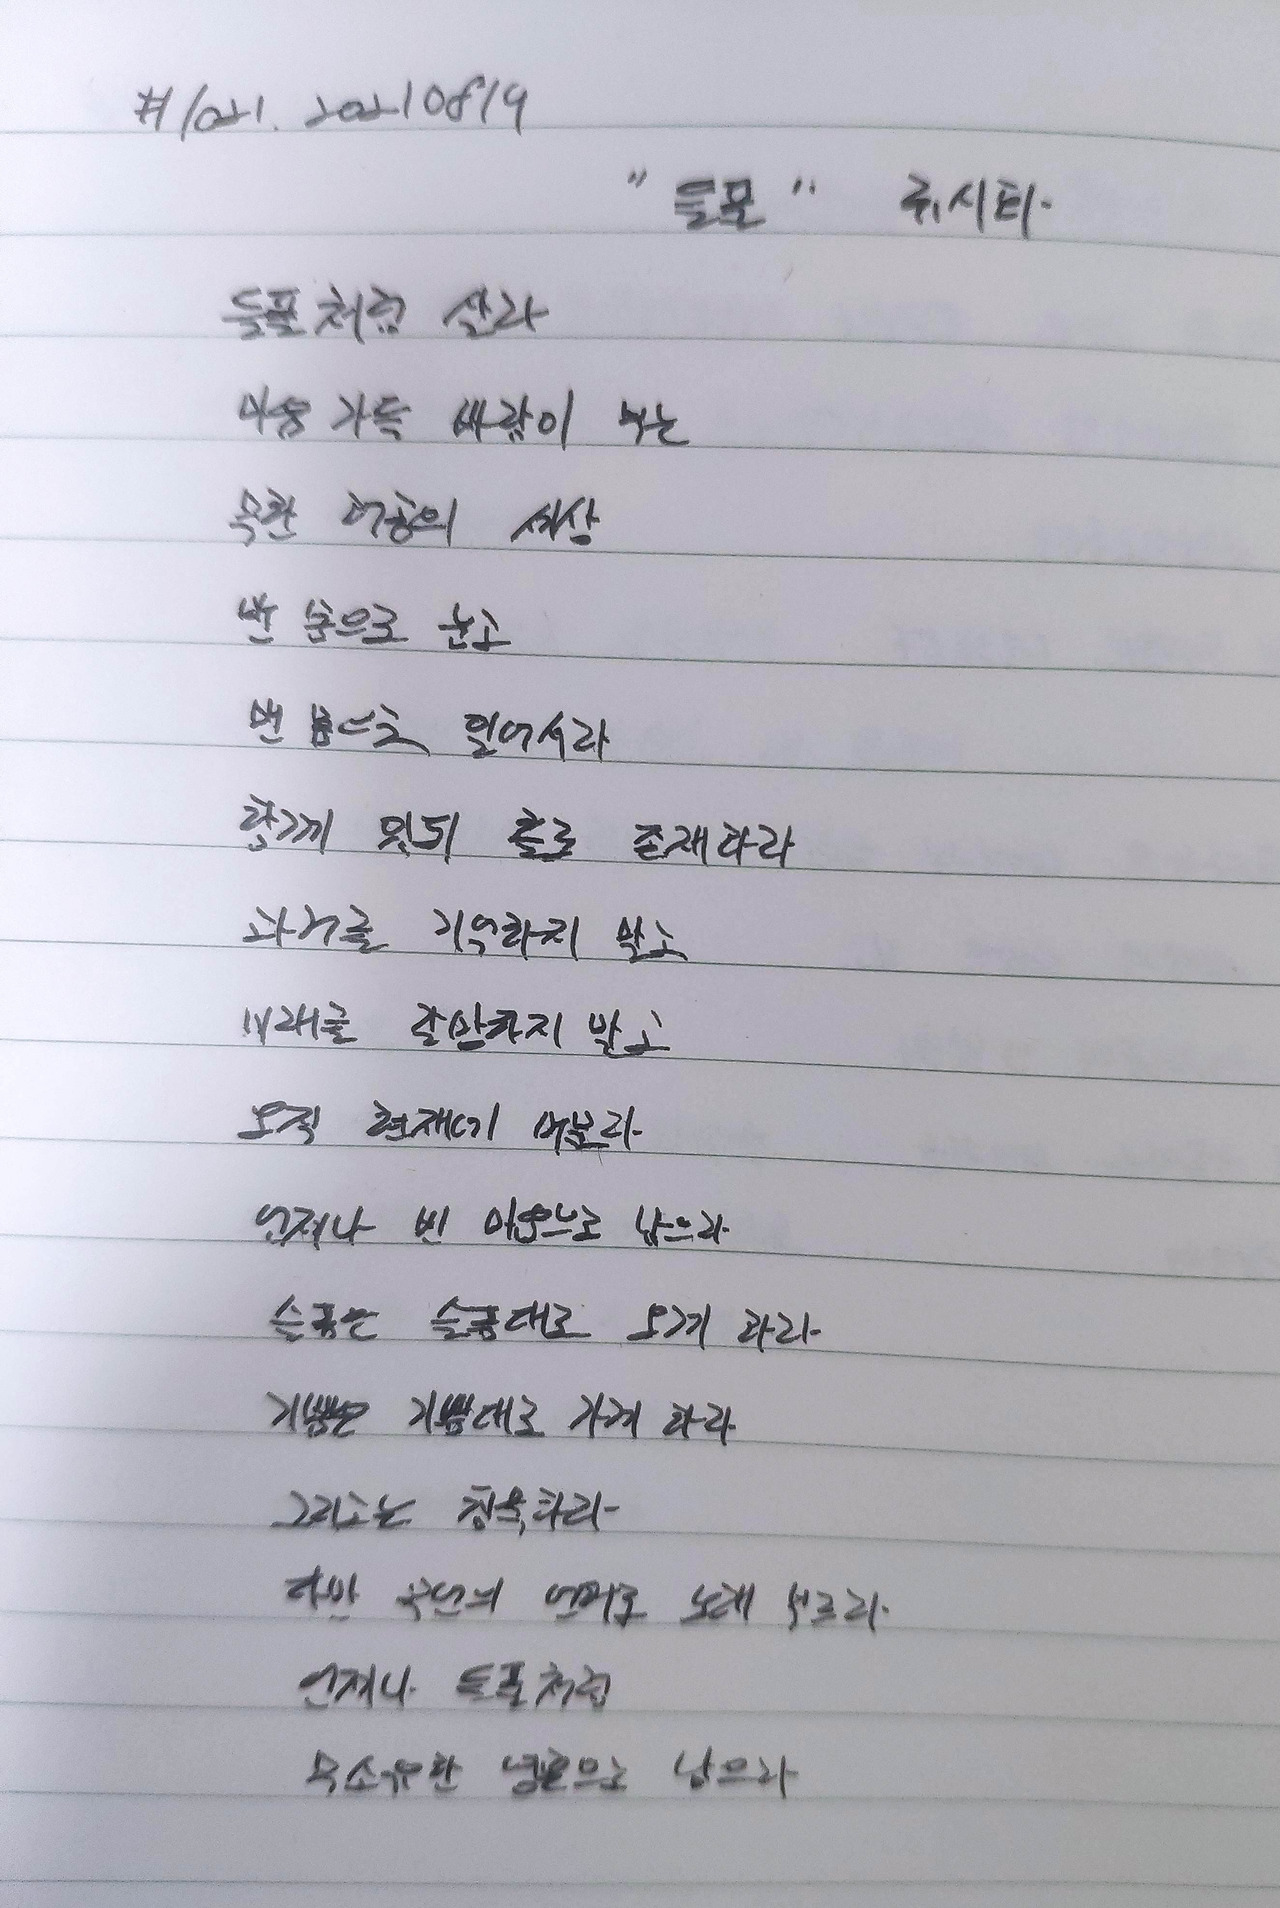 #1021. 20210819
"들풀" 류시화
들풀처럼 살라
마음 가득 바람이 부는
무한 허공의 세상
맨 몸으로 눕고
맨 몸으로 일어서라
함께 있되 홀로 존재하라
과거를 기억하지 말고
미래를 갈망하지 말고
오직 현재에 머물라
언제나 빈 마음으로 남으라
슬픔은 슬픔대로 오게 하라
기쁨은 기쁨대로 가게 하라
그리고는 침묵하라
다만 무언의 언어로 노래 부르라
언제나 들풀처럼
무소유한 영혼으로 남으라